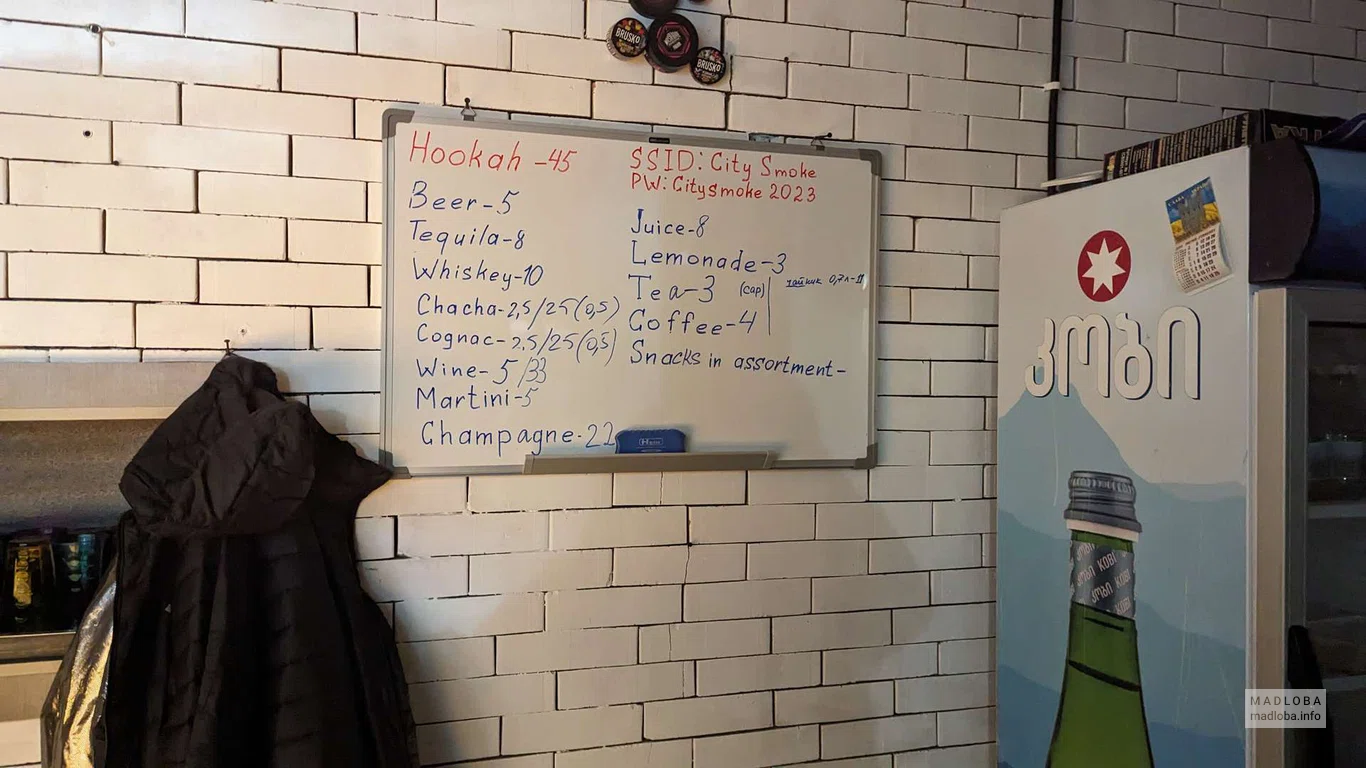 BRUSKO
BRUSKO
Hookah -45
Beer-5
Tequila-8
Whiskey-10
Chacha-2,5/25(0,5)
Cognac-2,5/25(0,5)
Wine-5/33
Martini-5
Champagne-22
SSID: City Smoke
PW: Citysmoke 2023
Juice-8
Lemonade-3
Tea-3 (cap) чайник 0,7л-11
Coffee-4
Snacks in assortment-
კობი
KOBI
კობი KOBI
კობი KOBI
MADLOBA
madloba.info